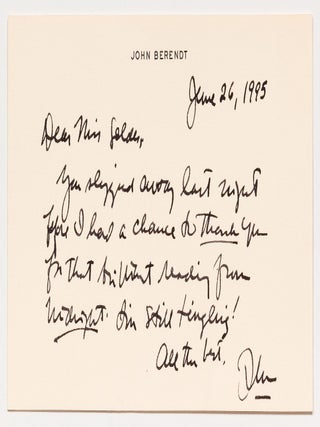 JOHN BERENDT
June 26, 1995
Dear Miss Golden,
You slipped away last night
before I had a chance to thank you
for that brilliant reading from
Midnight. I'm still tingling!
All the best,
John